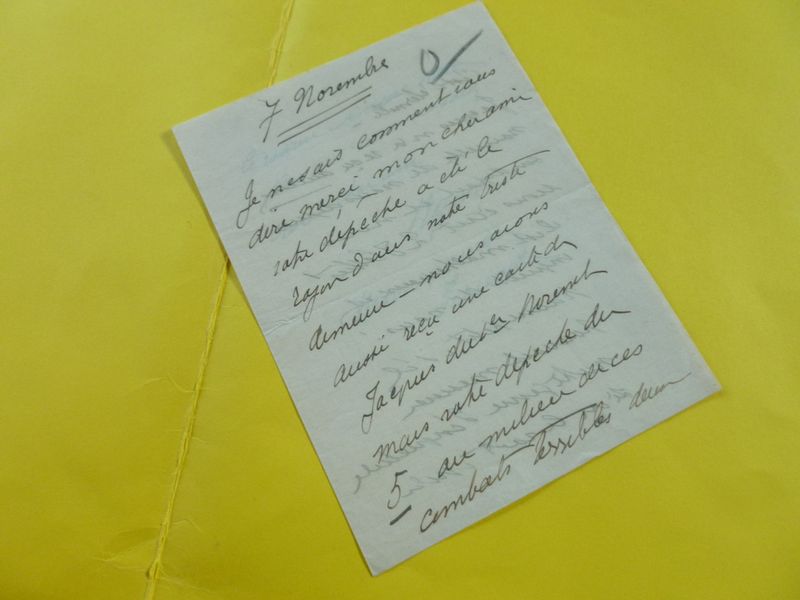 7 Novembre
Je ne sais comment vous
dire merci mon cher ami
votre dépêche a été le
rayon dans notre triste
demeure – nous avons
aussi reçu une carte de
Jacques du 1er Novemb
mais votre dépêche du
5 au milieu de ces
combats terribles